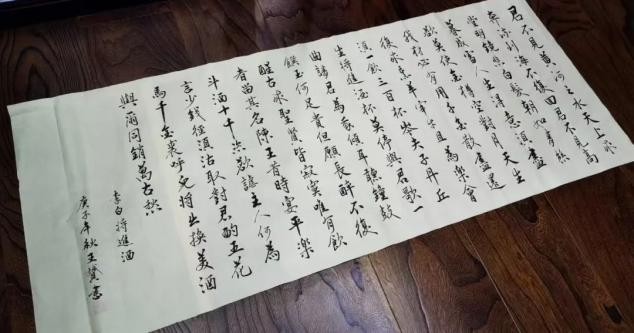 君不見黃河之水天上來
奔流到海不復回君不見高
堂明鏡悲白髮朝如青絲
暮成雪人生得意須盡
歡莫使金樽空對月天生
我材必有用千金散盡還
復來烹羊宰牛且為樂會
須一飲三百杯岑夫子丹丘
生將進酒杯莫停與君歌一
曲請君為我傾耳聽鐘鼓
饌玉何足貴但願長醉不復
醒古來聖賢皆寂寞唯有飲
者留其名陳王昔時宴平樂
斗酒十千恣歡謔主人何為
言少錢徑須沽取對君酌五花
馬千金裘呼兒將出換美酒
與爾同銷萬古愁
李白將進酒
庚子年秋王賢書